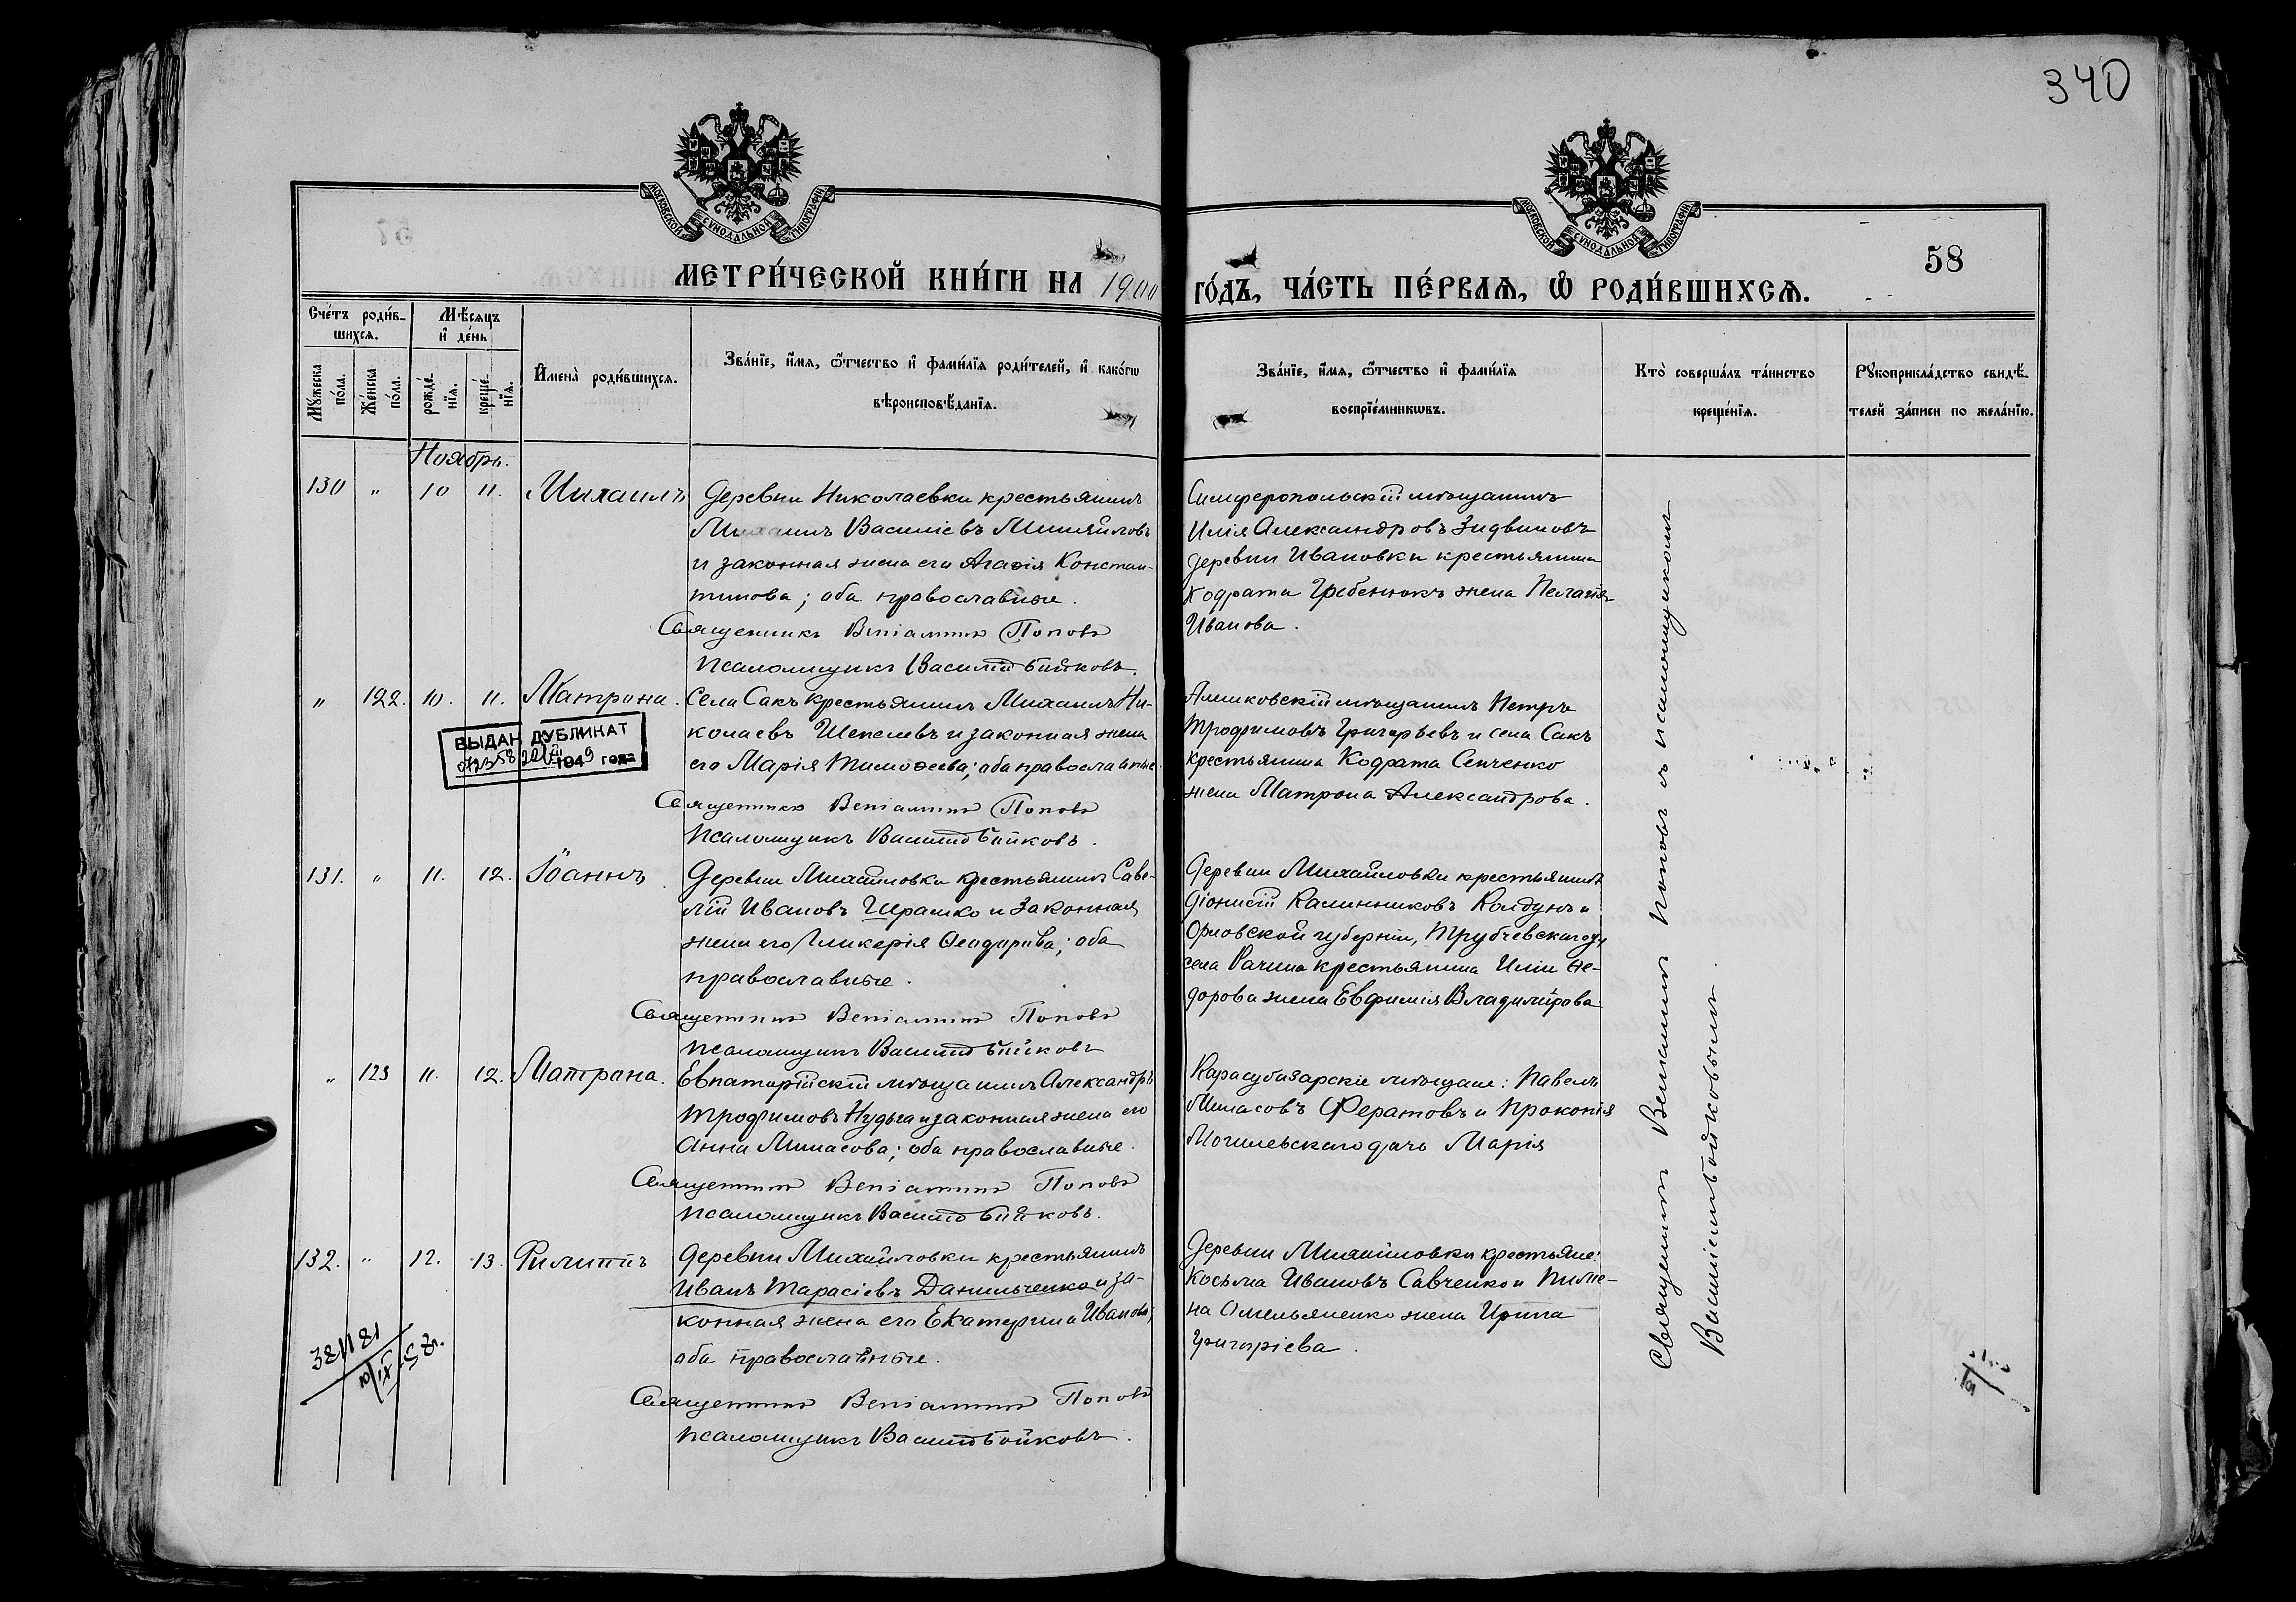 340
МОСКОВСКОЙ СѴНОДАЛЬНОЙ ТИПОГРАФИИ
МОСКОВСКОЙ СѴНОДАЛЬНОЙ ТИПОГРАФИИ
58
МЕТРИ́ЧЕСКОЙ КНИ́ГИ НА 1900
ГО́ДЪ, ЧА́СТЬ ПЕ́РВАѦ, Ѡ РОДИ́ВШИХСѦ.
Сче́тъ роди́в-
шихсѧ.
Мѣ́сѧцъ
и҆ де́нь
Мꙋ́жеска по́ла.
Же́нска по́ла.
рожде́-
нїѧ.
креще́-
нїѧ.
И҆мена̀ роди́вшихсѧ.
Зва́нїе, и҆́мѧ, ѻ҆́тчество и҆ фами́лїѧ роди́телей, и҆ како́гѡ
вѣроисповѣ́данїѧ.
Зва́нїе, и҆́мѧ, ѻ҆́тчество и҆ фами́лїѧ
воспрїе́мникѡвъ.
Кто̀ соверша́лъ та́инство
креще́нїѧ.
Рꙋкоприкла́дство свидѣ́-
телей за́писи по жела́нїю.
Ноябрь.
130 " 10 11. Михаилъ
Деревни Николаевки крестьянинъ
Михаилъ Василіевъ Михайловъ
и законная жена его Агаѳія Констан-
тинова; оба православные.
Священникъ Веніаминъ Поповъ
Псаломщикъ Василій Бойковъ.
Симферопольскій мѣщанинъ
Илія Александровъ
деревни Ивановки крестьянина
Кодрата Гребенюкъ жена Пелагія
Иванова.
" 122. 10. 11. Матрона.
Села Сакъ крестьянинъ Михаилъ Ни-
колаевъ Шепелевъ и законная жена
его Марія Тимоѳеева; оба православные.
Священникъ Веніаминъ Поповъ
Псаломщикъ Василій Бойковъ.
Алешковскій мѣщанинъ Петръ
Трофимовъ Григорьевъ и села Сакъ
крестьянина Кодрата Сенченко
жена Матрона Александрова.
ВЫДАН ДУБЛИКАТ
1949 года
131. " 11. 12. Іоаннъ
Деревни Михайловки крестьянинъ Саве-
лій Ивановъ Шрамко и законная
жена его Гликерія Ѳеодорова; оба
православные.
Священникъ Веніаминъ Поповъ
Псаломщикъ Василій Бойковъ
Деревни Михайловки крестьянинъ
Діонисій Калинниковъ Колдунъ и
Орловской губерніи, Трубчевскаго у.,
села Рачина крестьянина Иліи Ѳе-
дорова жена Евфимія Владимірова.
" 123 11. 12. Матрона.
Евпаторійскій мѣщанинъ Александръ
Трофимовъ Нудьга и законная жена его
Анна Минасова; оба православные.
Священникъ Веніаминъ Поповъ
Псаломщикъ Василій Бойковъ.
Карасубазарскіе мѣщане: Павелъ
Минасовъ Фератовъ и Прокопія
Могилевскаго дочь Марія
132. " 12. 13. Филиппъ
Деревни Михайловки крестьянинъ
Иванъ Тарасіевъ Данильченко и за-
конная жена его Екатерина Иванова;
оба православные.
Священникъ Веніаминъ Поповъ
Псаломщикъ Василій Бойковъ.
Деревни Михайловки крестьяне:
Косьма Ивановъ Савченко и Пиме-
на Омельяненко жена Ирина
Григоріева.
Священникъ Веніаминъ Поповъ съ псаломщикомъ
Василіемъ Бойковымъ.